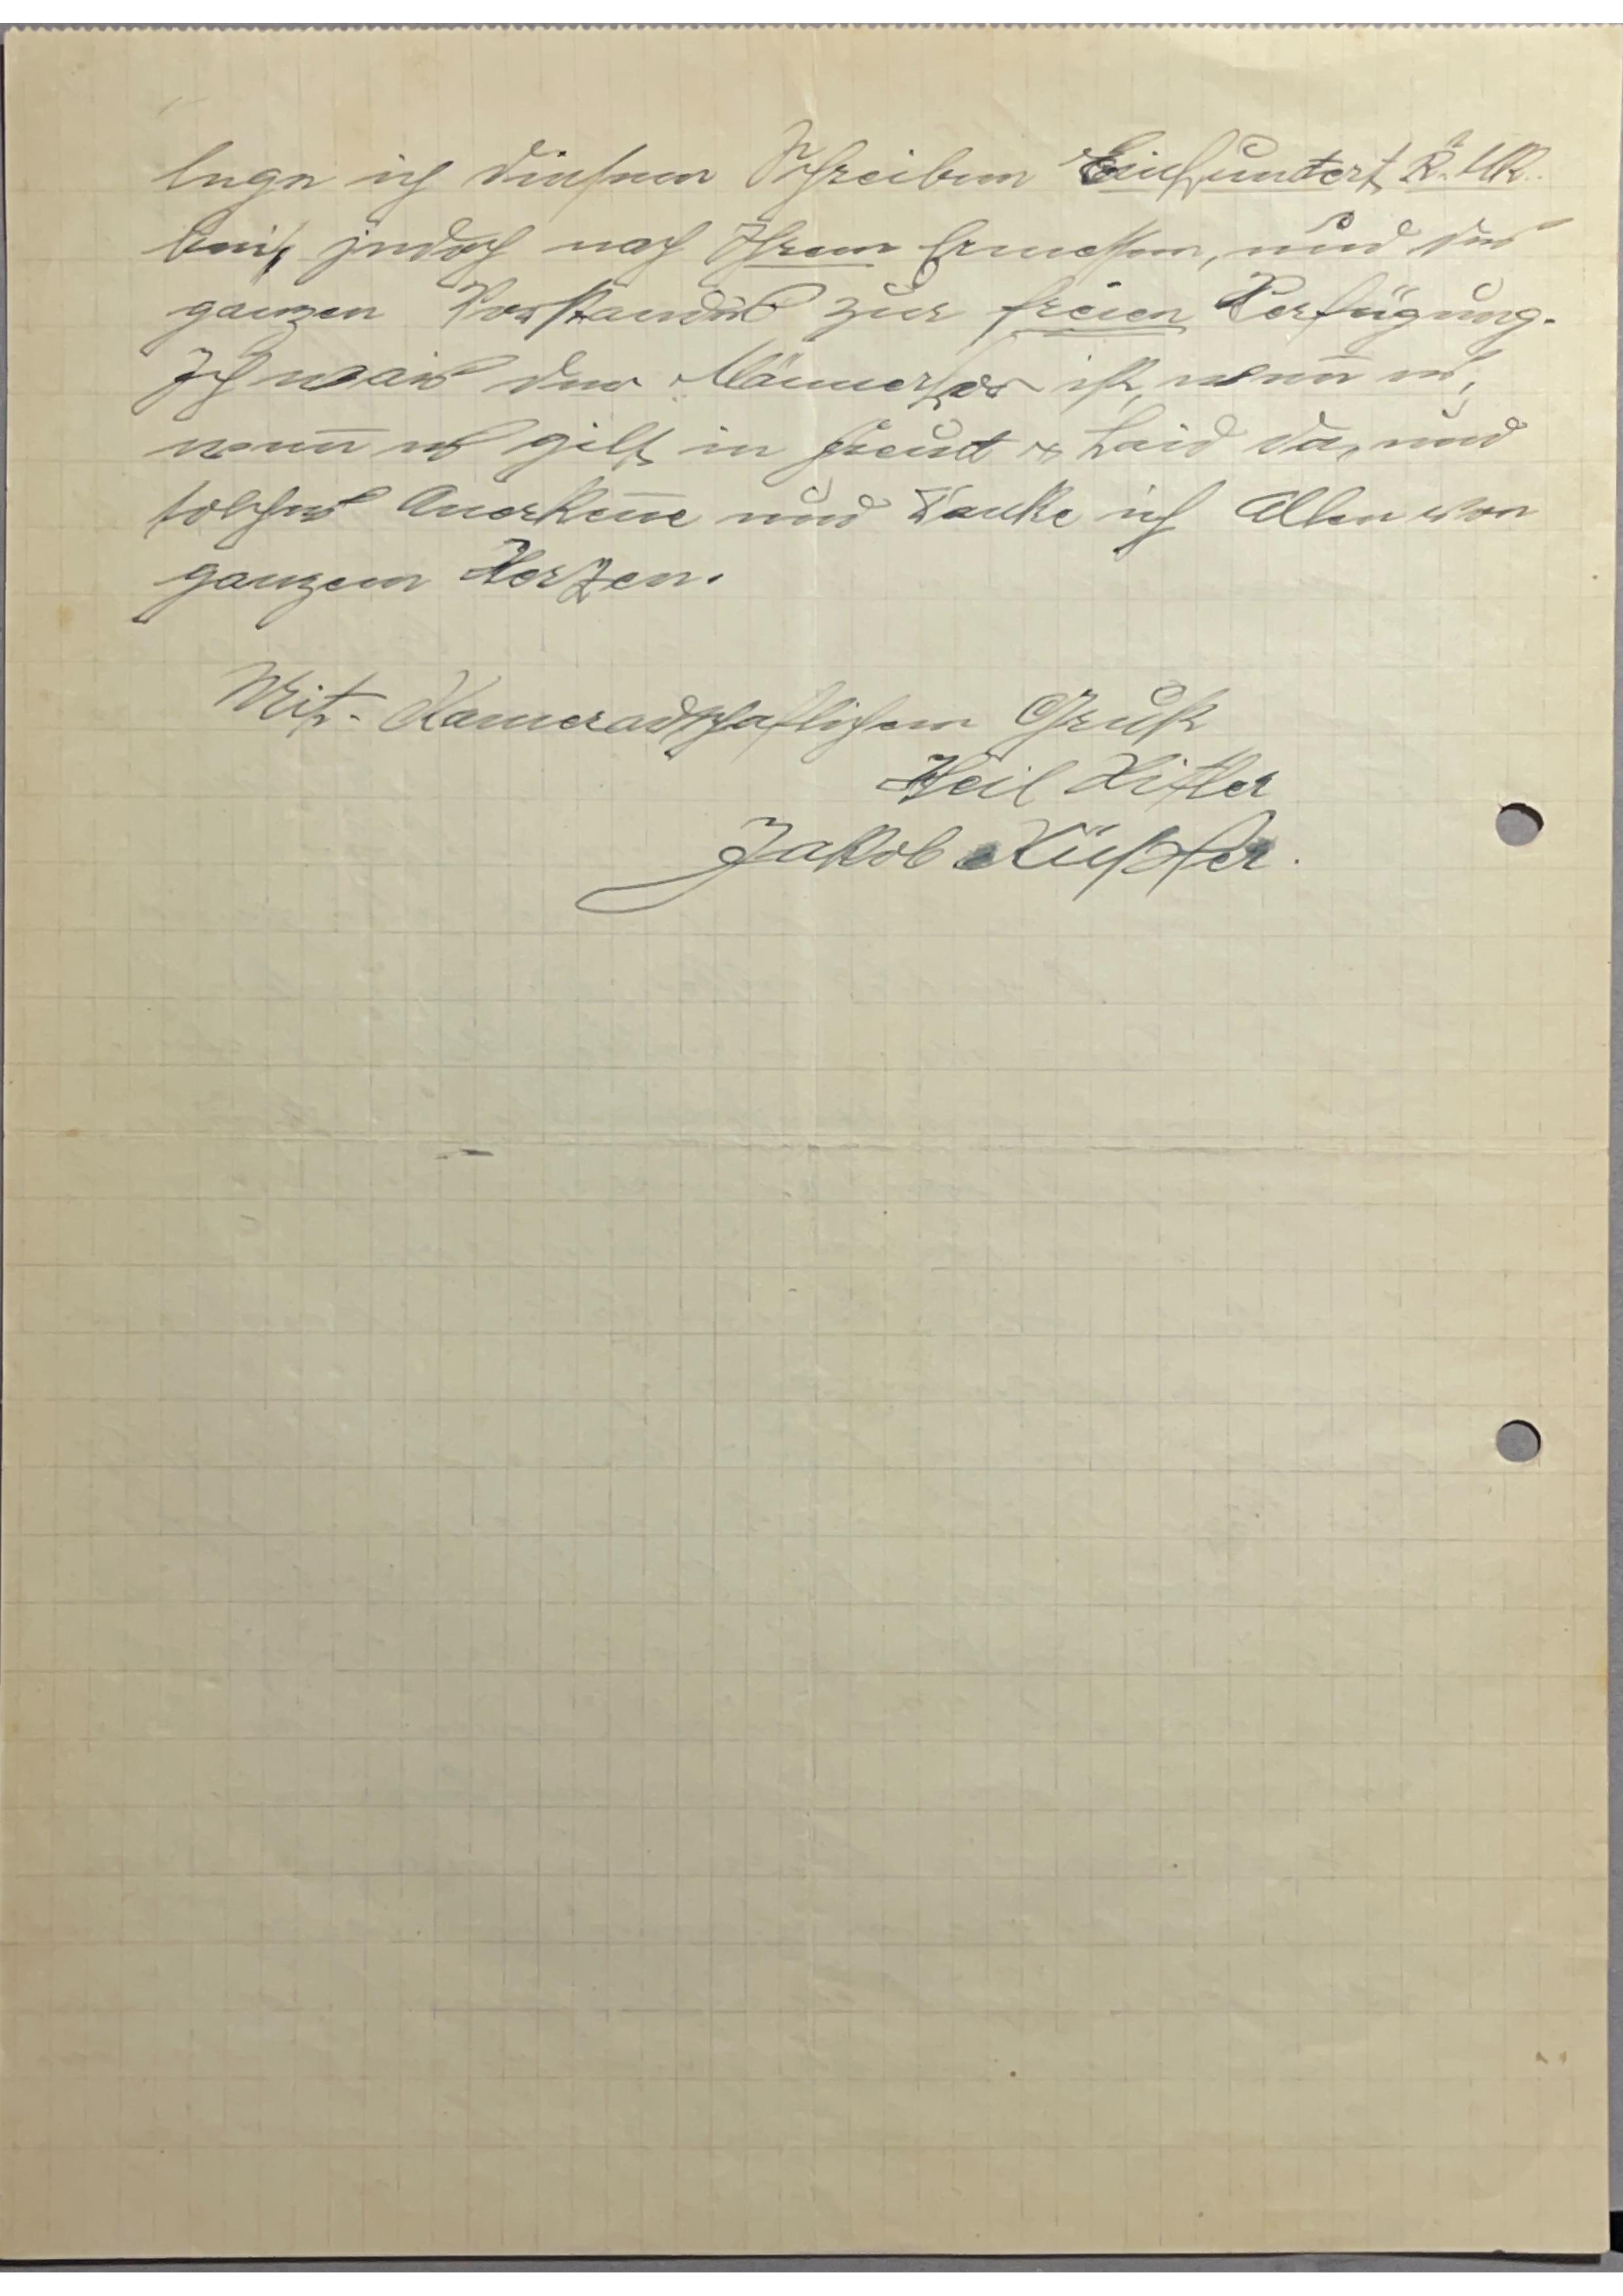 lege ich diesem Schreiben Einhundert R. Mk.
bei, jedoch nach Ihrem Ermessen, und des
ganzen Vorstandes zur freien Verfügung.
Ich weis der Männerchor ist, wenn es,
wenn es gilt in Freud & Laid da, und
solches Anerkenne und Danke ich Allen von
ganzem Herzen.
Mit Kameradschaftlichem Gruß
Heil Hitler
Jakob